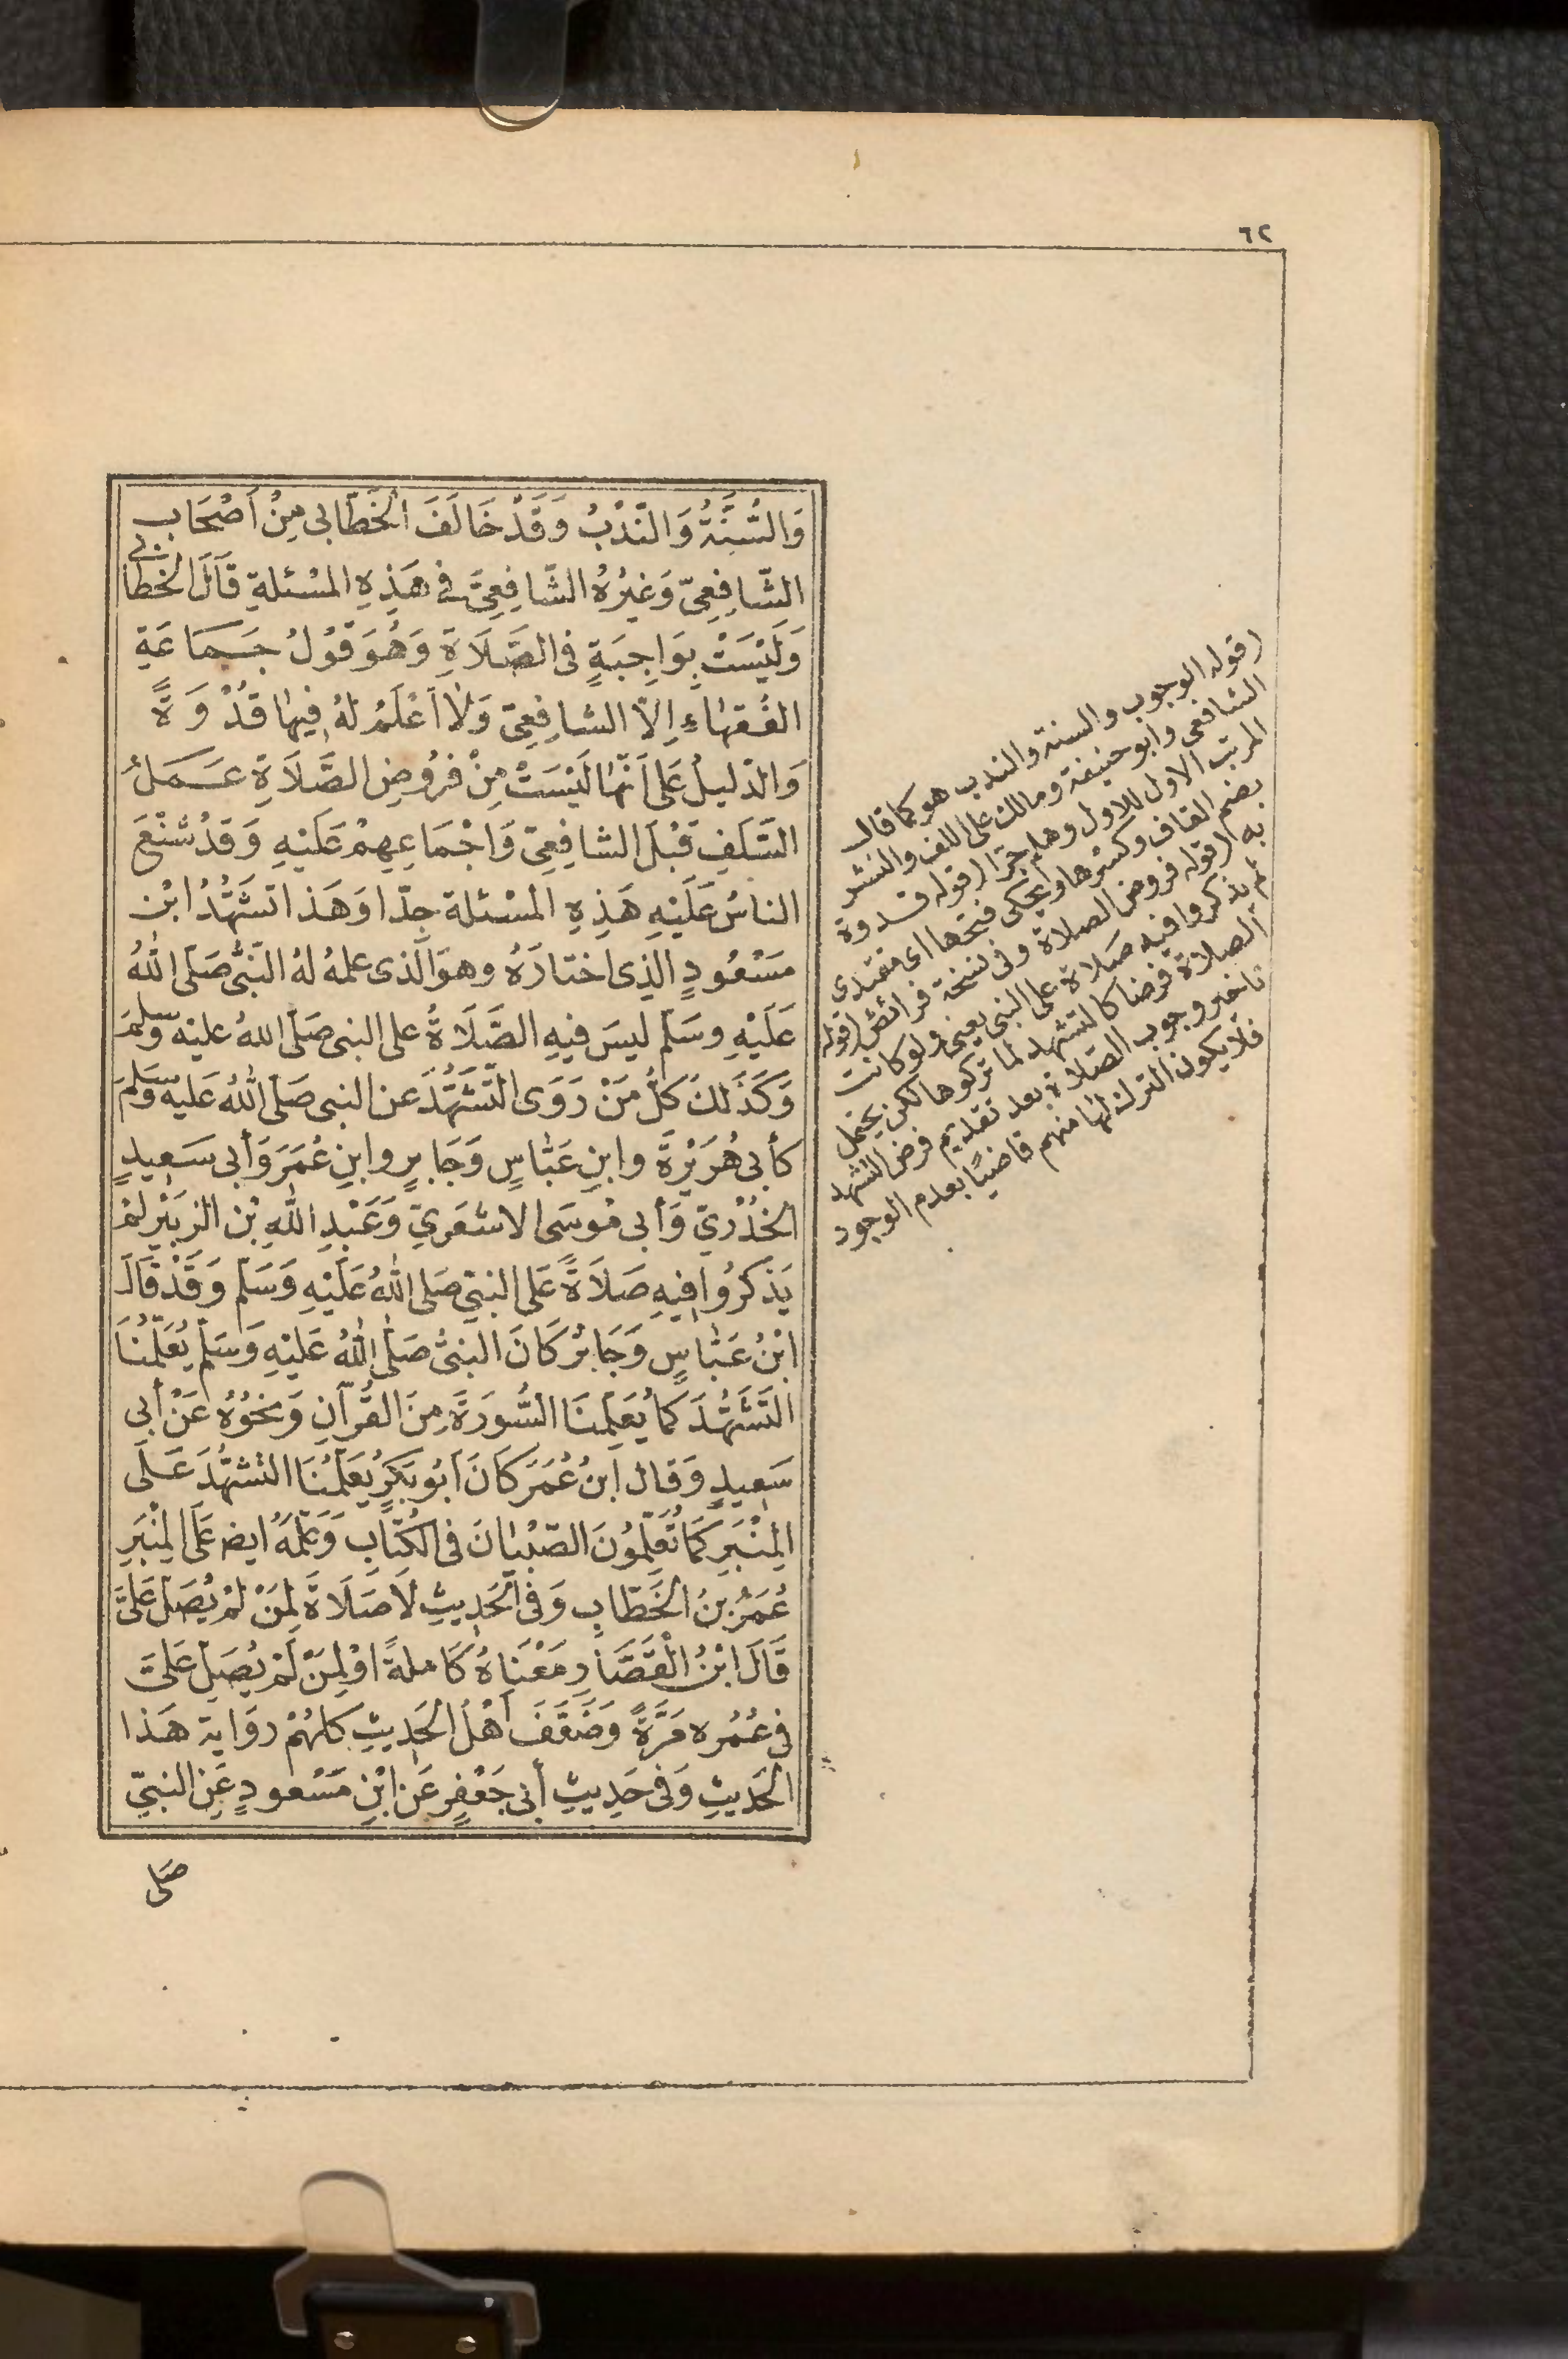 ٦٢
وَالسُّنَّةُ وَالنَّدْبُ وَقَدْ خَالَفَ الْخَطَّابِى مِنْ اَصْحَابِ
الشَّافِعِىّ وَغَيْرُهُ الشَّافِعِىَّ فى هَذِهِ المَسْئَلةِ قَالَ الْخَطَّابى
وَلَيْسَتْ بِوَاجِبَةٍ فى الصَّلَاةِ وَهُوَ قَوْلُ جَمَاعَةِ
الفُقَهَاءِ اِلاَّ الشافِعِىّ وَلاَ اَعْلَمُ لهُ فِيهَا قُدْوَةً
وَالدَّلِيلُ عَلى اَنَّهَا لَيْسَتْ مِنْ فُرُوضِ الصَّلَاةِ عَمَلُ
السَّلَفِ قَبْلَ الشافِعِىّ وَاجْمَاعِهِمْ عَلَيْهِ وَقَدْ شَنَّعَ
الناسُ عَلَيْهِ هَذِهِ المَسْئَلة جِدّا وَهَذا تَشَهُّدُ ابْن
مَسْعُودٍ الذِى اخْتارَهُ وهوَ الَّذى علمهُ لهُ النَّبىُّ صَلَّى اللهُ
عَلَيْهِ وسَلَّم ليسَ فيهِ الصَّلَاةُ على النبى صَلَّى اللهُ عليْه وسلم
وَكَذَلكَ كلُّ مَنْ رَوَى التَّشَهُّدَ عن النبى صَلّى اللهُ عَليه وَسَلمَ
كأبى هُرَيْرَةَ وابنِ عَبَّاسٍ وَجَابرٍ وابنِ عُمَرَ وَأبى سَعِيدٍ
الخُدْرىّ وَأبى مُوسَى الاشْعَرِىّ وَعَبْدِ اللهِ بْن الزبَيْرِ لمْ
يَذكرُوا فِيهِ صَلاَةً عَلى النبىّ صَلى اللهُ عَلَيْهِ وَسَلّم وَقَدْ قَالَ
ابْنُ عَبَّاسٍ وَجَابرٌ كَانَ النبىُّ صَلَّى اللهُ عَليْهِ وَسَلّم يُعَلّمُنَا
التَّشَهُّدَ كمَا يُعَلِّمنَا السُّورَةَ مِنَ القُرْآنِ وَنحْوُهُ عَنْ أبى
سَعِيدٍ وَقال ابنُ عُمَرَ كَانَ اَبُو بَكرٍ يُعَلّمُنَا التشهُّدَ عَلَى
المِنْبَرِ كَمَا تُعَلِّمُونَ الصّبْيَانَ فى الكُتّابِ وَعَلّمَهُ ايضا عَلَى المِنْبَرِ
عُمَرُ بنُ الخَطّابِ وَفى الحَدِيثِ لَا صَلَاةَ لِمَنْ لمْ يُصَلّ عَلَىَّ
قَالَ ابْنُ الْقَصَّارِ مَعْنَاهُ كَاملةً اوْ لِمَنْ لَمْ يُصَلّ عَلىَّ
فى عُمُره مَرَّةً وَضَعَّفَ اَهْلُ الحَدِيثِ كلهُمْ روَاية هَذا
الحَديثِ وَفى حَدِيثِ أبى جَعْفَرٍ عَن ابْنِ مَسْعُودٍ عَنِ النبىّ
صَلى
(قوله الوجوب والسنة والندب هو كما قال
الشافعى وابو حنيفة ومالك على اللف والنشر
المرتب الاول للاول وهلم جرّا (قوله قدوة
بضم القاف وكسرها ويحكى فتحها اى مقتدى
به (قوله فروض الصلاة وفى نسخة فرائض (قوله
لم يذكروا فيه صلاة على النبى يعنى ولو كانت
الصلاة فرضا كالتشهد لما تركوها لكن يحتمل
تأخير وجوب الصلاة بعد تقديم فرض التشهد
فلا يكون الترك لها منهم قاضيًا بعدم الوجود